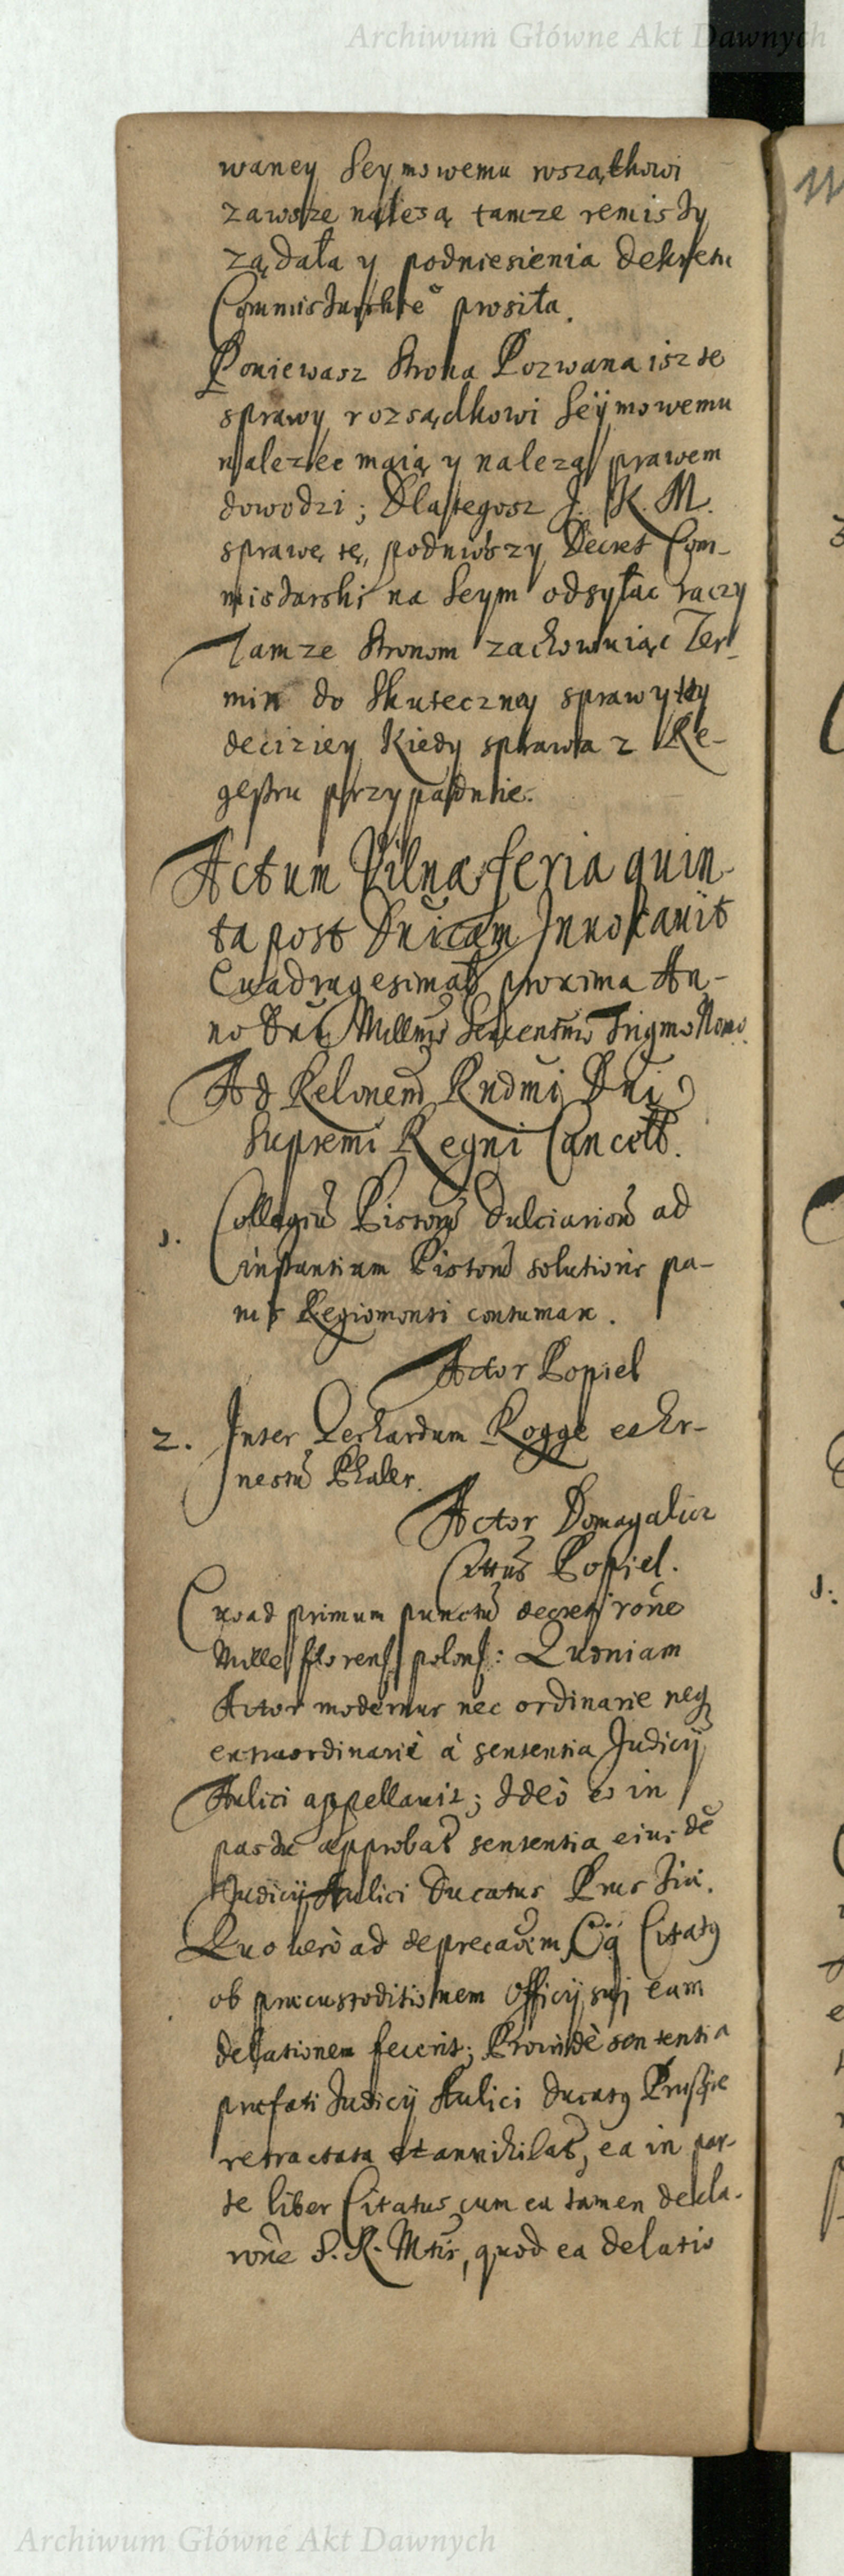 Archiwum Główne Akt Dawnych
waney Seymowemu rosządkowi
zawsze należą tamze remissy
ządała y podniesienia dekretu
Commissarskie° prosiła.
Poniewasz Strona Pozwana isz te
sprawy rozsądkowi Seÿmowemu
należec maią y należą prawem
dowodzi; Dlategosz J. K. M.
sprawę tę, podniózszy Decret Com-
missarski na Seym odsyłac raczy
Tamze Stronom zachowuiąc Ter-
min do Skuteczney sprawy tey
deciziey Kiedy sprawa z Re-
gestru przypadnie.
Actum Vilnæ feria quin-
ta post Dnicam Invocavit
Quadragesimalē proxima An-
no Dni Millmo Sexcentmo Trigmo Nono.
Ad Relonem Rndmi Dni
Supremi Regni Cancell.
1. Collegiū Pistorū dulciariorū ad
instantiam Pistorū solutioris pa-
nis Regiomonti contumax.
Actor Popiel
2. Inter Gerhardum Rogge et Er-
nestū Phaler.
Actor Domagalicz
Cittus Popiel.
Quoad primum punctū decreti rone
Mille floren polon: Quoniam
Actor modernus nec ordinarie neq
extraordinariè à sententia Judicij
Aulici appellavit; Ideò et in
passu approbat sententia eiusdē
Judicij Aulici Ducatus Prussiæ.
Quo verò ad deprecaōem, Cū Citatus
ob præcustoditionem Officij sui eam
delationem fecerit; Proindè sententia
præfati Judicij Aulici Ducatus Prussiæ
retractata et annihilat, ea in par-
te liber Citatus, cum ea tamen decla-
rone S. R. Mtis, quod ea delatio
Archiwum Główne Akt Dawnych